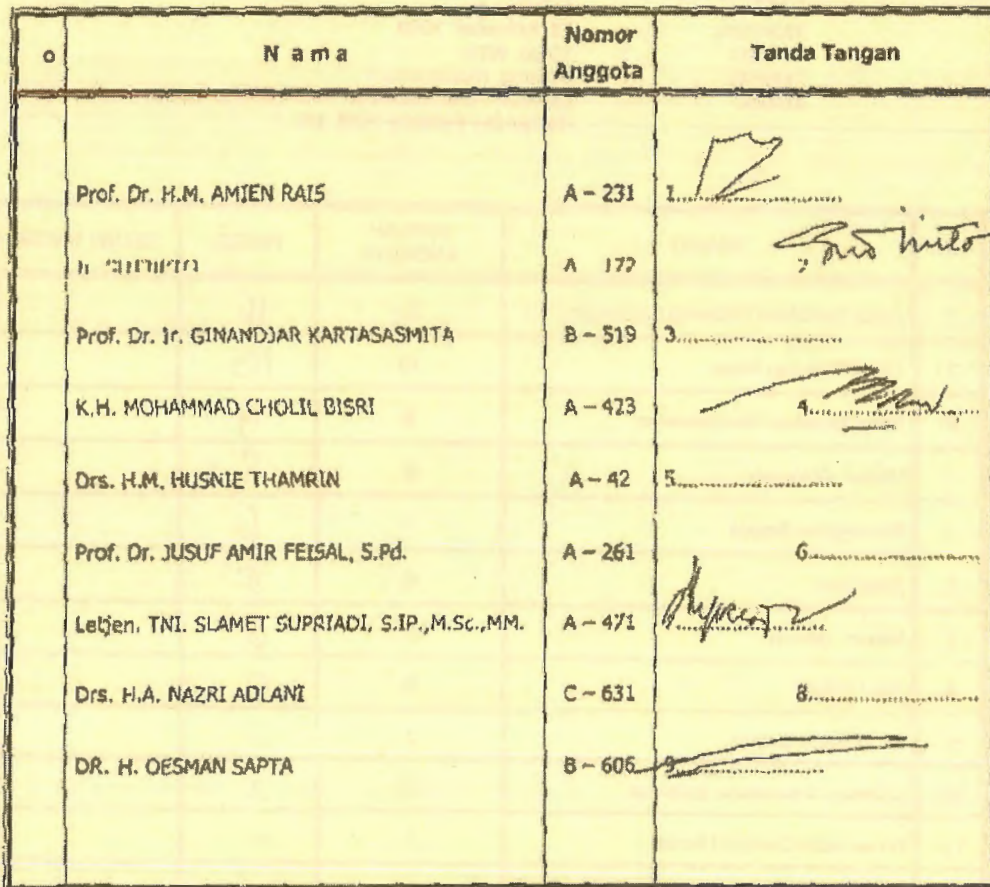 o N a m a Nomor Anggota Tanda Tangan
Prof. Dr. H.M. AMIEN RAIS A - 231 1.
Ir. SUTJIPTO A 172 2
Prof. Dr. Ir. GINANDJAR KARTASASMITA B - 519 3.
K.H. MOHAMMAD CHOLIL BISRI A - 423 4.
Drs. H.M. HUSNIE THAMRIN A - 42 5.
Prof. Dr. JUSUF AMIR FEISAL, S.Pd. A - 261 6.
Letjen. TNI. SLAMET SUPRIADI, S.IP.,M.Sc.,MM. A - 471
Drs. H.A. NAZRI ADLANI C - 631 8.
DR. H. OESMAN SAPTA B - 606 9.